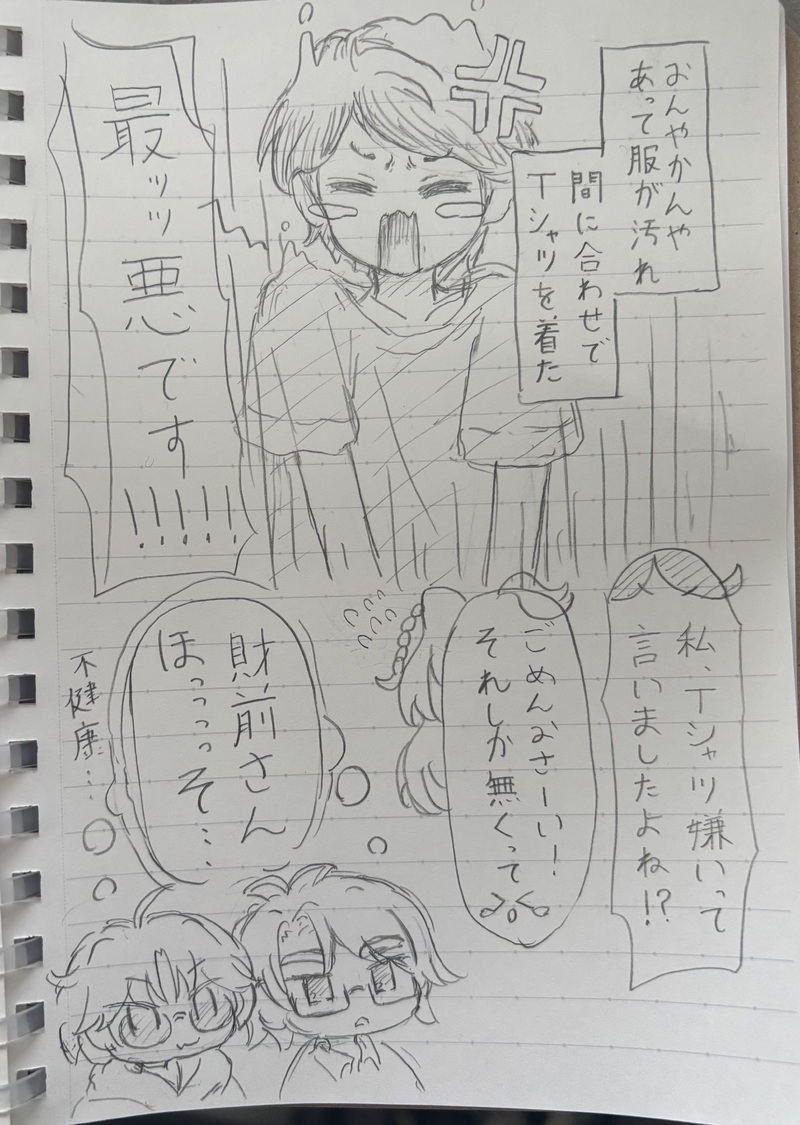 おんやかんや
あって服が汚れ
間に合わせで
Tシャツを着た
最ッッ悪です!!!!!
私、Tシャツ嫌いって
言いましたよね!?
ごめんなさーい!
それしか無くって
財前さん
ほっっっっそ…
不健康…